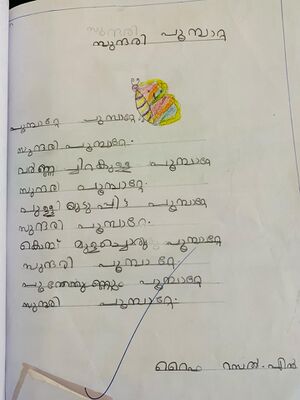 സുന്ദരി
സുന്ദരി പൂമ്പാറ്റ
പൂമ്പാറ്റേ പൂമ്പാറ്റേ
സുന്ദരി പൂമ്പാറ്റേ.
വർണ്ണ ച്ചിറകുള്ള പൂമ്പാറ്റേ
സുന്ദരി പൂമ്പാറ്റേ.
പുള്ളിയുടുപ്പിട്ട പൂമ്പാറ്റേ
സുന്ദരി പൂമ്പാറ്റേ.
കൊമ്പ് മുളച്ചൊരു പൂമ്പാറ്റേ
സുന്ദരി പൂമ്പാ റ്റേ.
പൂന്തേനുണ്ണും പൂമ്പാറ്റേ
സുന്ദരി പൂമ്പാറ്റേ.